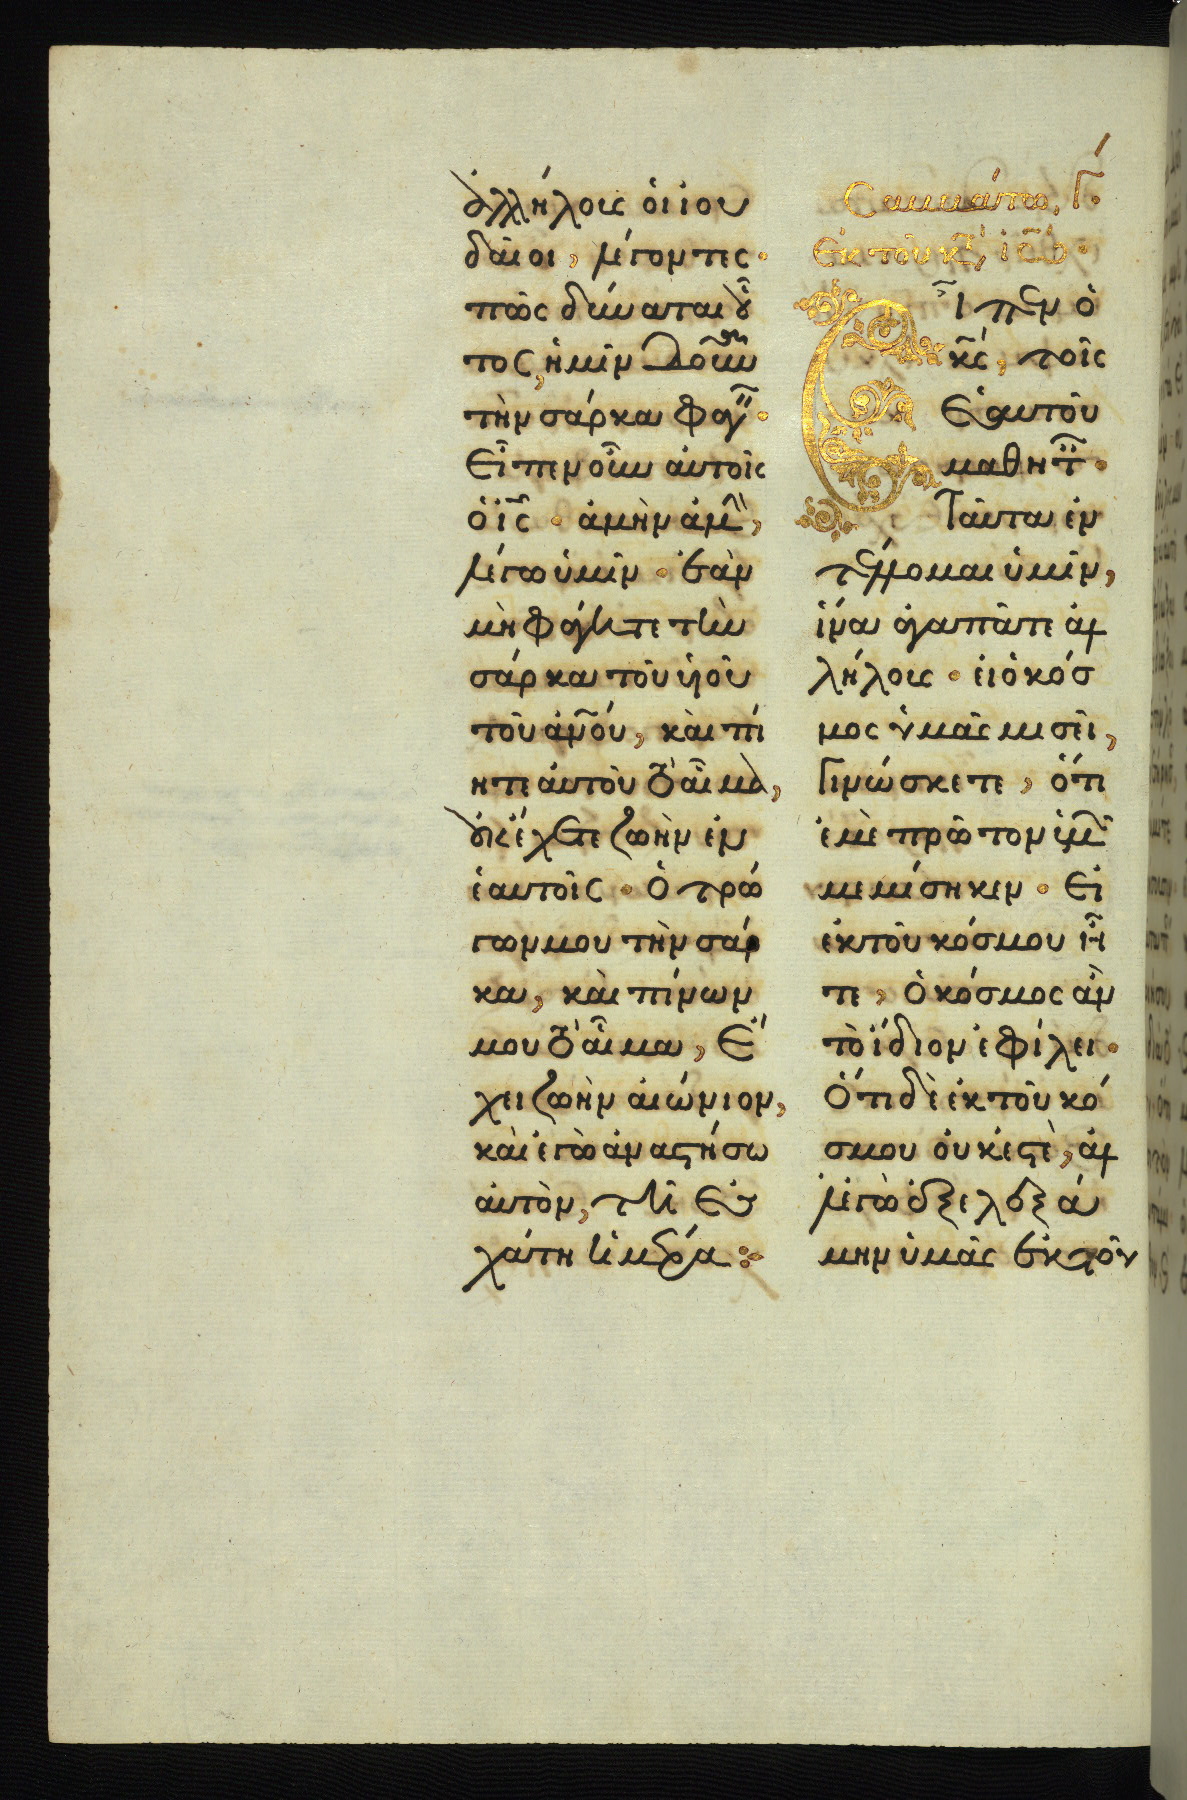 ἀλλήλους οἱ ἰου
δαῖοι, λέγοντες·
πῶς δύναται οὗ
τος, ἡμῖν δοῦν
τὴν σάρκα φαγ·
Εἶπεν οὖν αὐτοῖς
ὁ ἰς̄· ἀμὴν ἀμ,
λέγω ὑμῖν· ἐὰν
μὴ φάγητε τὴν
σάρκα τοῦ υἱοῦ
τοῦ ἀνου, καὶ πί
ητε αὐτοῦ τὸ αἷμα,
οὐκ ἔχετε ζωὴν ἐν
ἑαυτοῖς· Ὁ τρώ
γων μου τὴν σάρ
κα, καὶ πίνων
μου τὸ αἷμα, Ἔ
χει ζωὴν αἰώνιον,
καὶ ἐγὼ ἀναστήσω
αὐτὸν, τῆ Ἐσ
χάτη ἡμέρα:
Σαββάτω, γ·
Εκ τοῦ κτ, ἰω·
Εἶπεν ὁ
κς̄, τοῖς
Ἑαυτοῦ
μαθητ·
Ταῦτα ἐν
τέλλομαι ὑμῖν,
ἵνα ἀγαπᾶτε ἀλ
λήλους· εἰ ὁ κόσ
μος ὑμᾶς μισεῖ,
Γινώσκετε, ὅτι
ἐμὲ πρῶτον ὑμ
μεμίσηκεν· Εἰ
ἐκ τοῦ κόσμου ἦ
τε, Ὁ κόσμος ἂν
τὸ ἴδιον ἐφίλει·
Ὅτι δὲ ἐκ τοῦ κό
σμου οὐκ ἐστὲ, ἀλ
λ' ἐγὼ ἐξελεξά
μην ὑμᾶς ἐκ τοῦ